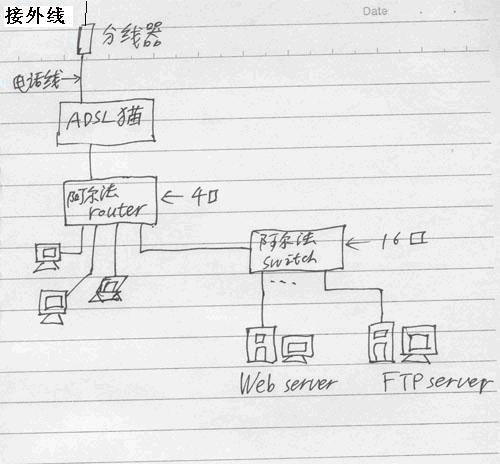 接外线
Date
分线器
电话线
ADSL猫
阿尔法
router
4口
阿尔法
switch
16口
...
Web server
FTP server